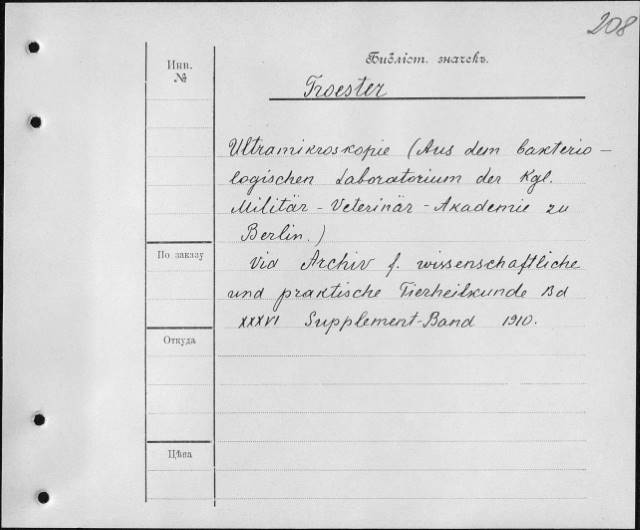 208
Инв.
№
Библіот. значекъ.
Troester
Ultramikroskopie (Aus dem bakterio-
logischen Laboratorium der Kgl.
Militär-Veterinär-Akademie zu
Berlin.)
Vid Archiv f. wissenschaftliche
und praktische Tierheilkunde Bd
XXXVI Supplement-Band 1910.
По заказу
Откуда
Цѣна